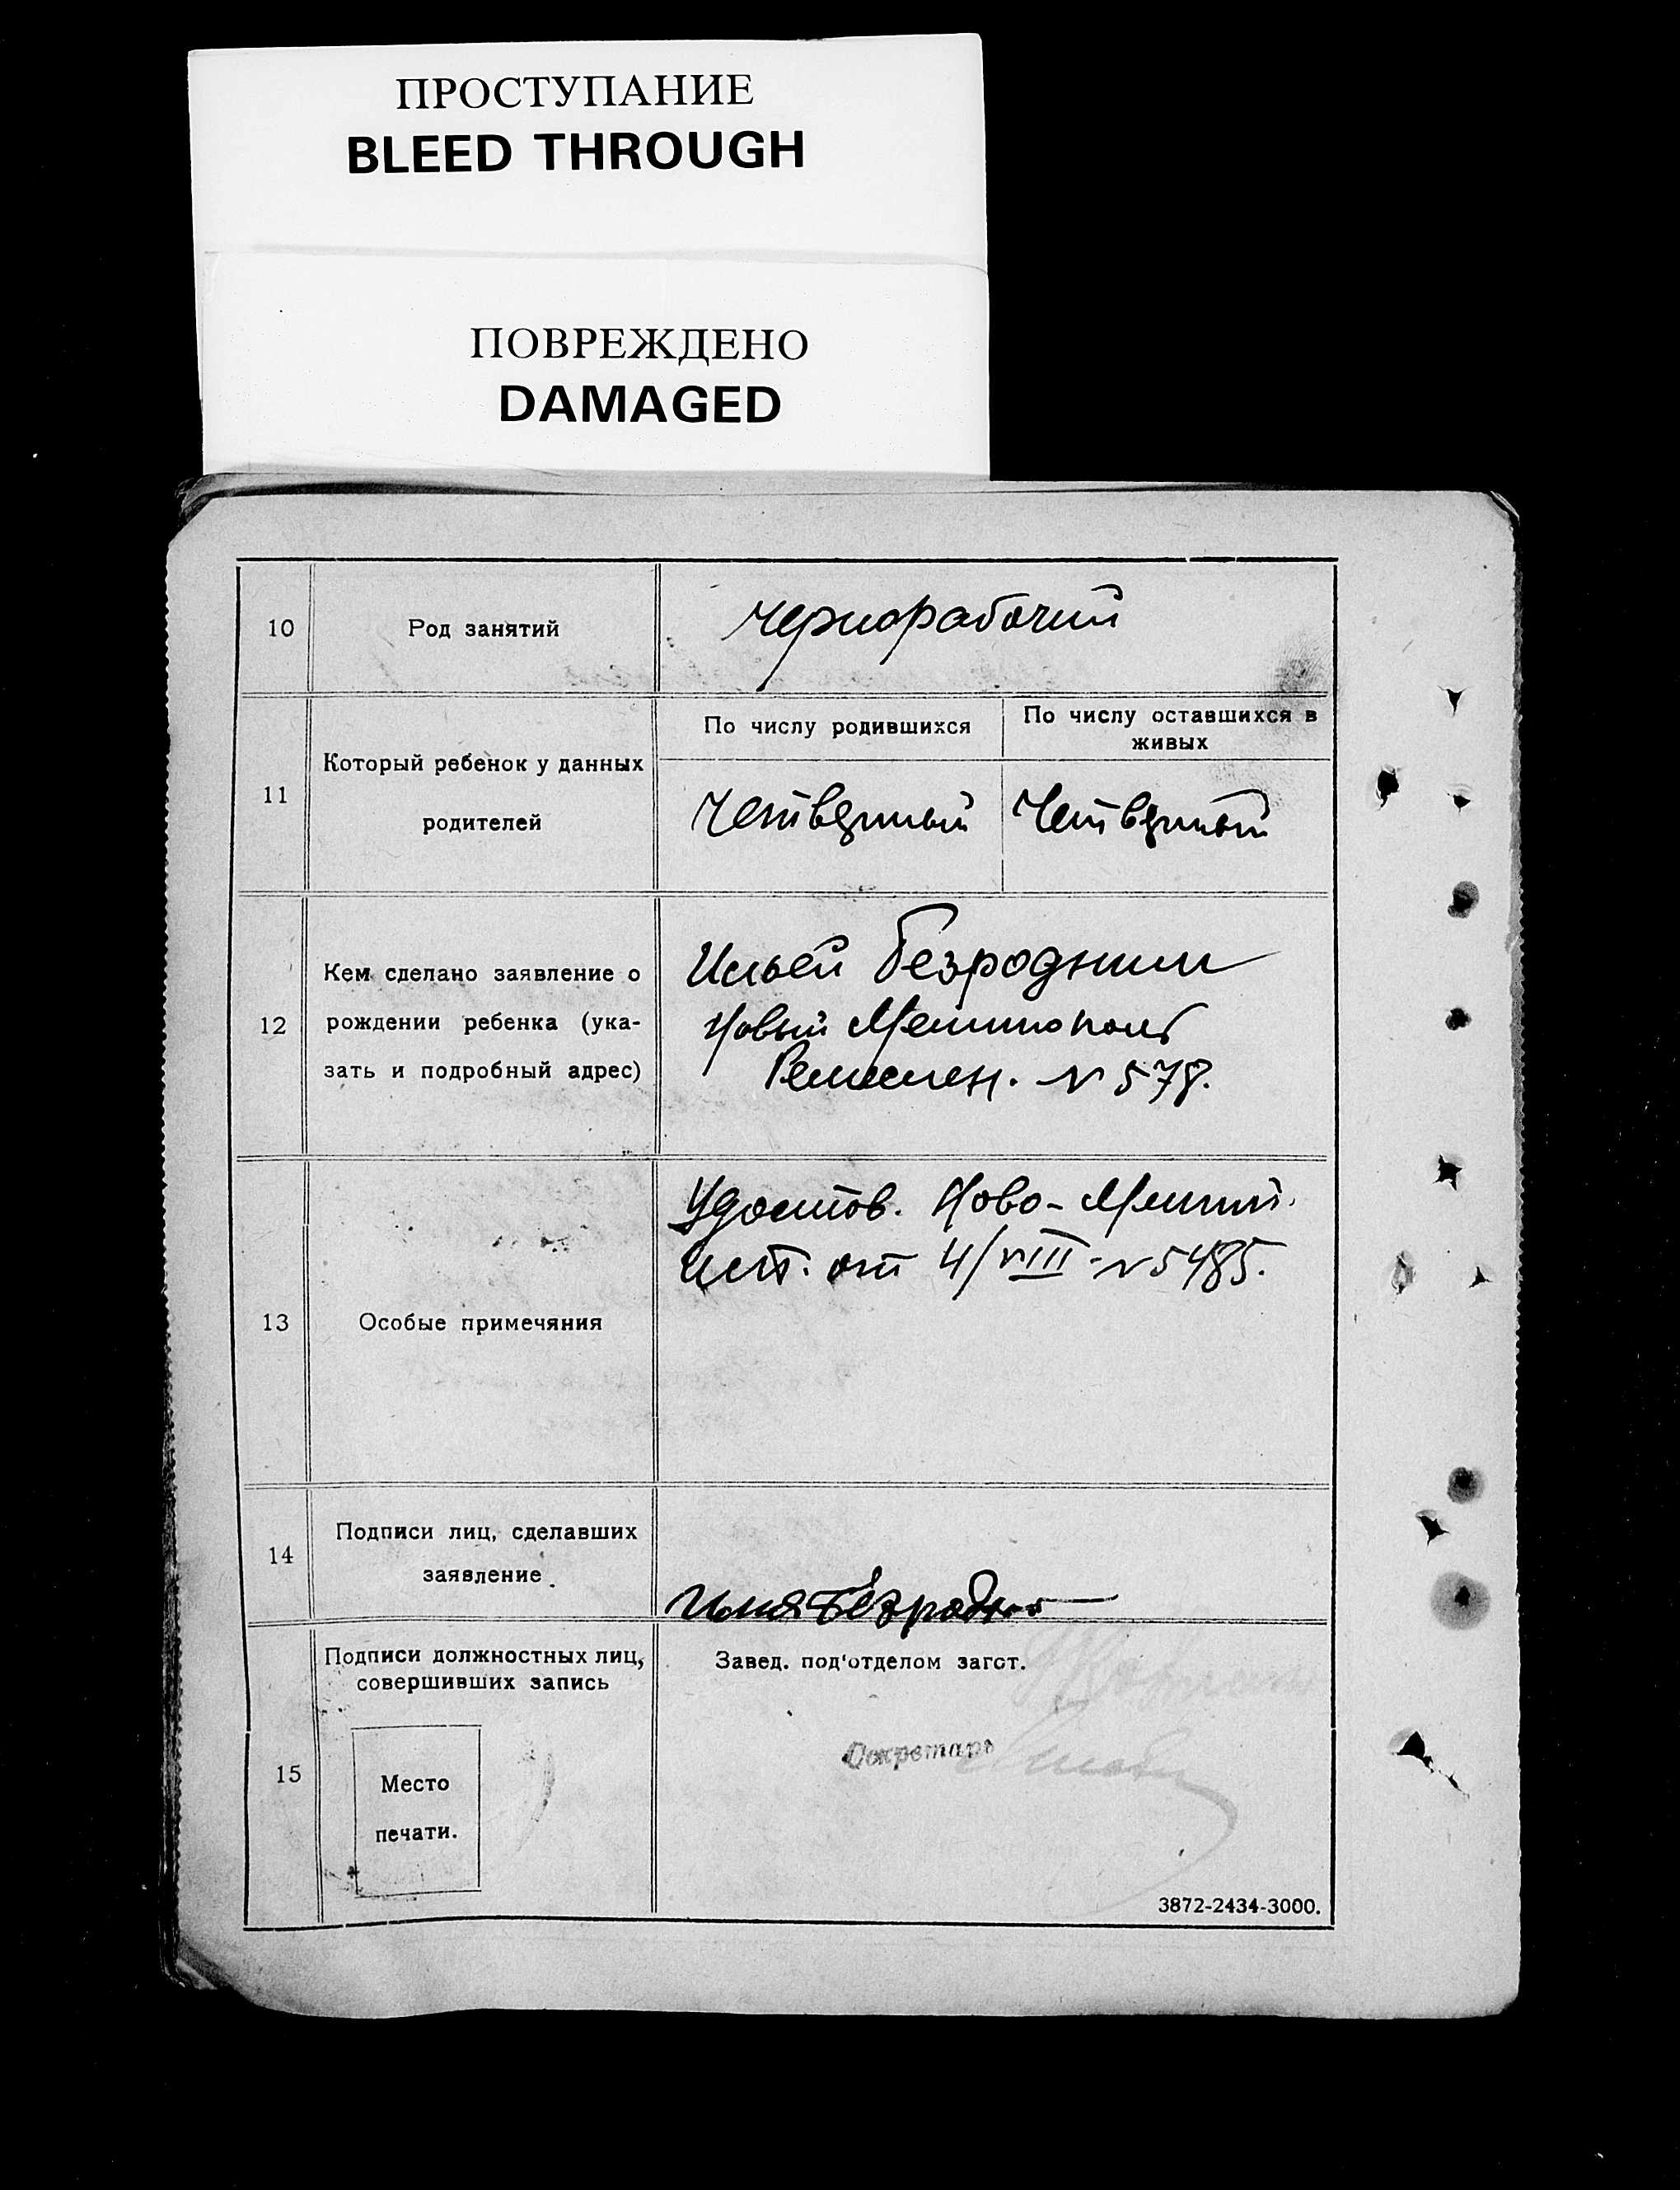 ПРОСТУПАНИЕ
BLEED THROUGH
ПОВРЕЖДЕНО
DAMAGED
10
Род занятий
чернорабочий
11
Который ребенок у данных
родителей
По числу родившихся
По числу оставшихся в
живых
Четвертый
Четвертый
12
Кем сделано заявление о
рождении ребенка (ука-
зать и подробный адрес)
Ильей Безродным
Новый
Ремеслен. № 578.
13
Особые примечяния
Удостов. Ново-
от 4/VIII № 5485.
14
Подписи лиц, сделавших
заявление.
Илья Безродн
15
Подписи должностных лиц,
совершивших запись
Место
печати.
Завед. под'отделом загст.
Секретарь
3872-2434-3000.